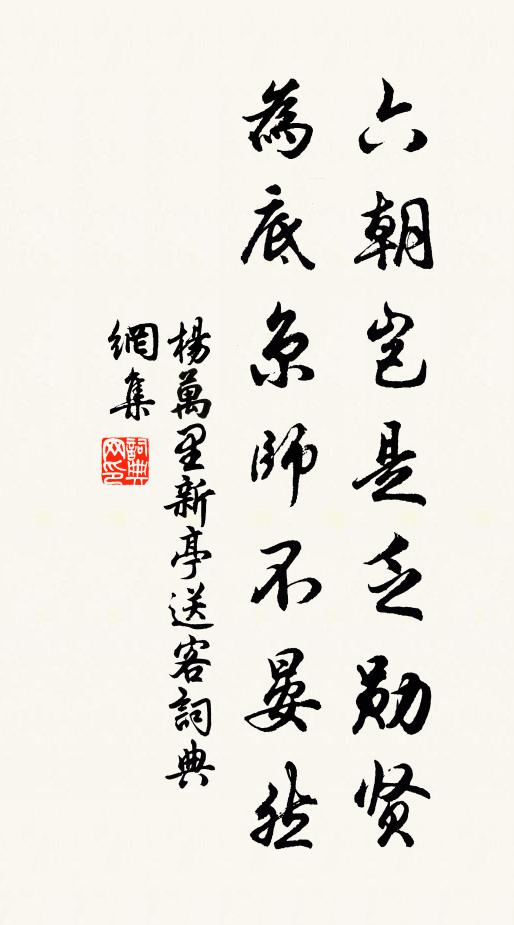 六朝岂是乏勋贤
為底京師不晏然
楊萬里新亭送客詞典
網集
詞典网印